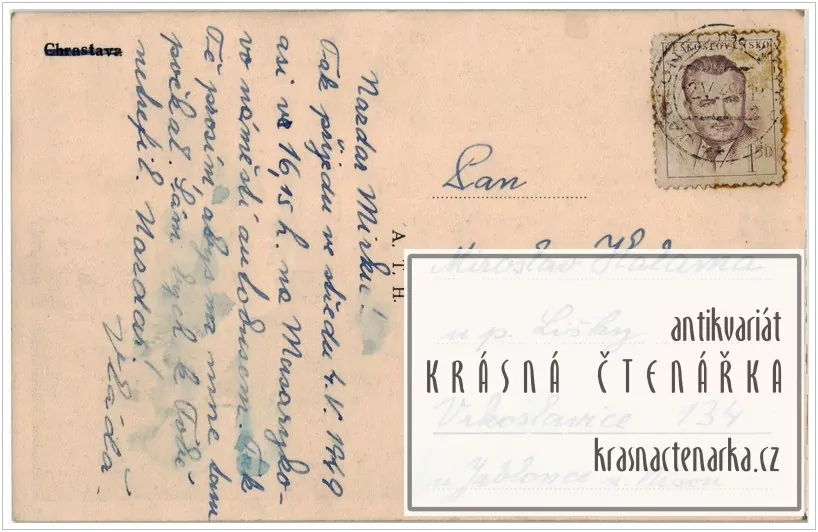 Chrastava
Nazdar Mirku!
Tak přijedu ve středu 4. V. 1949
asi v 16,15 h. na Masaryko-
vo náměstí autobusem. Tak
Tě prosím, abys na mne tam
počkal. Sám bych k Vám
netrefil. Nazdar!
Vláďa.
A. T. H.
ČESKOSLOVENSKO
1 50
Pan
Miroslav
u p. Lišky
Vrkoslavice 134
u Jablonce n. Nisou
antikvariát
KRÁSNÁ ČTENÁŘKA
krasnactenarka.cz